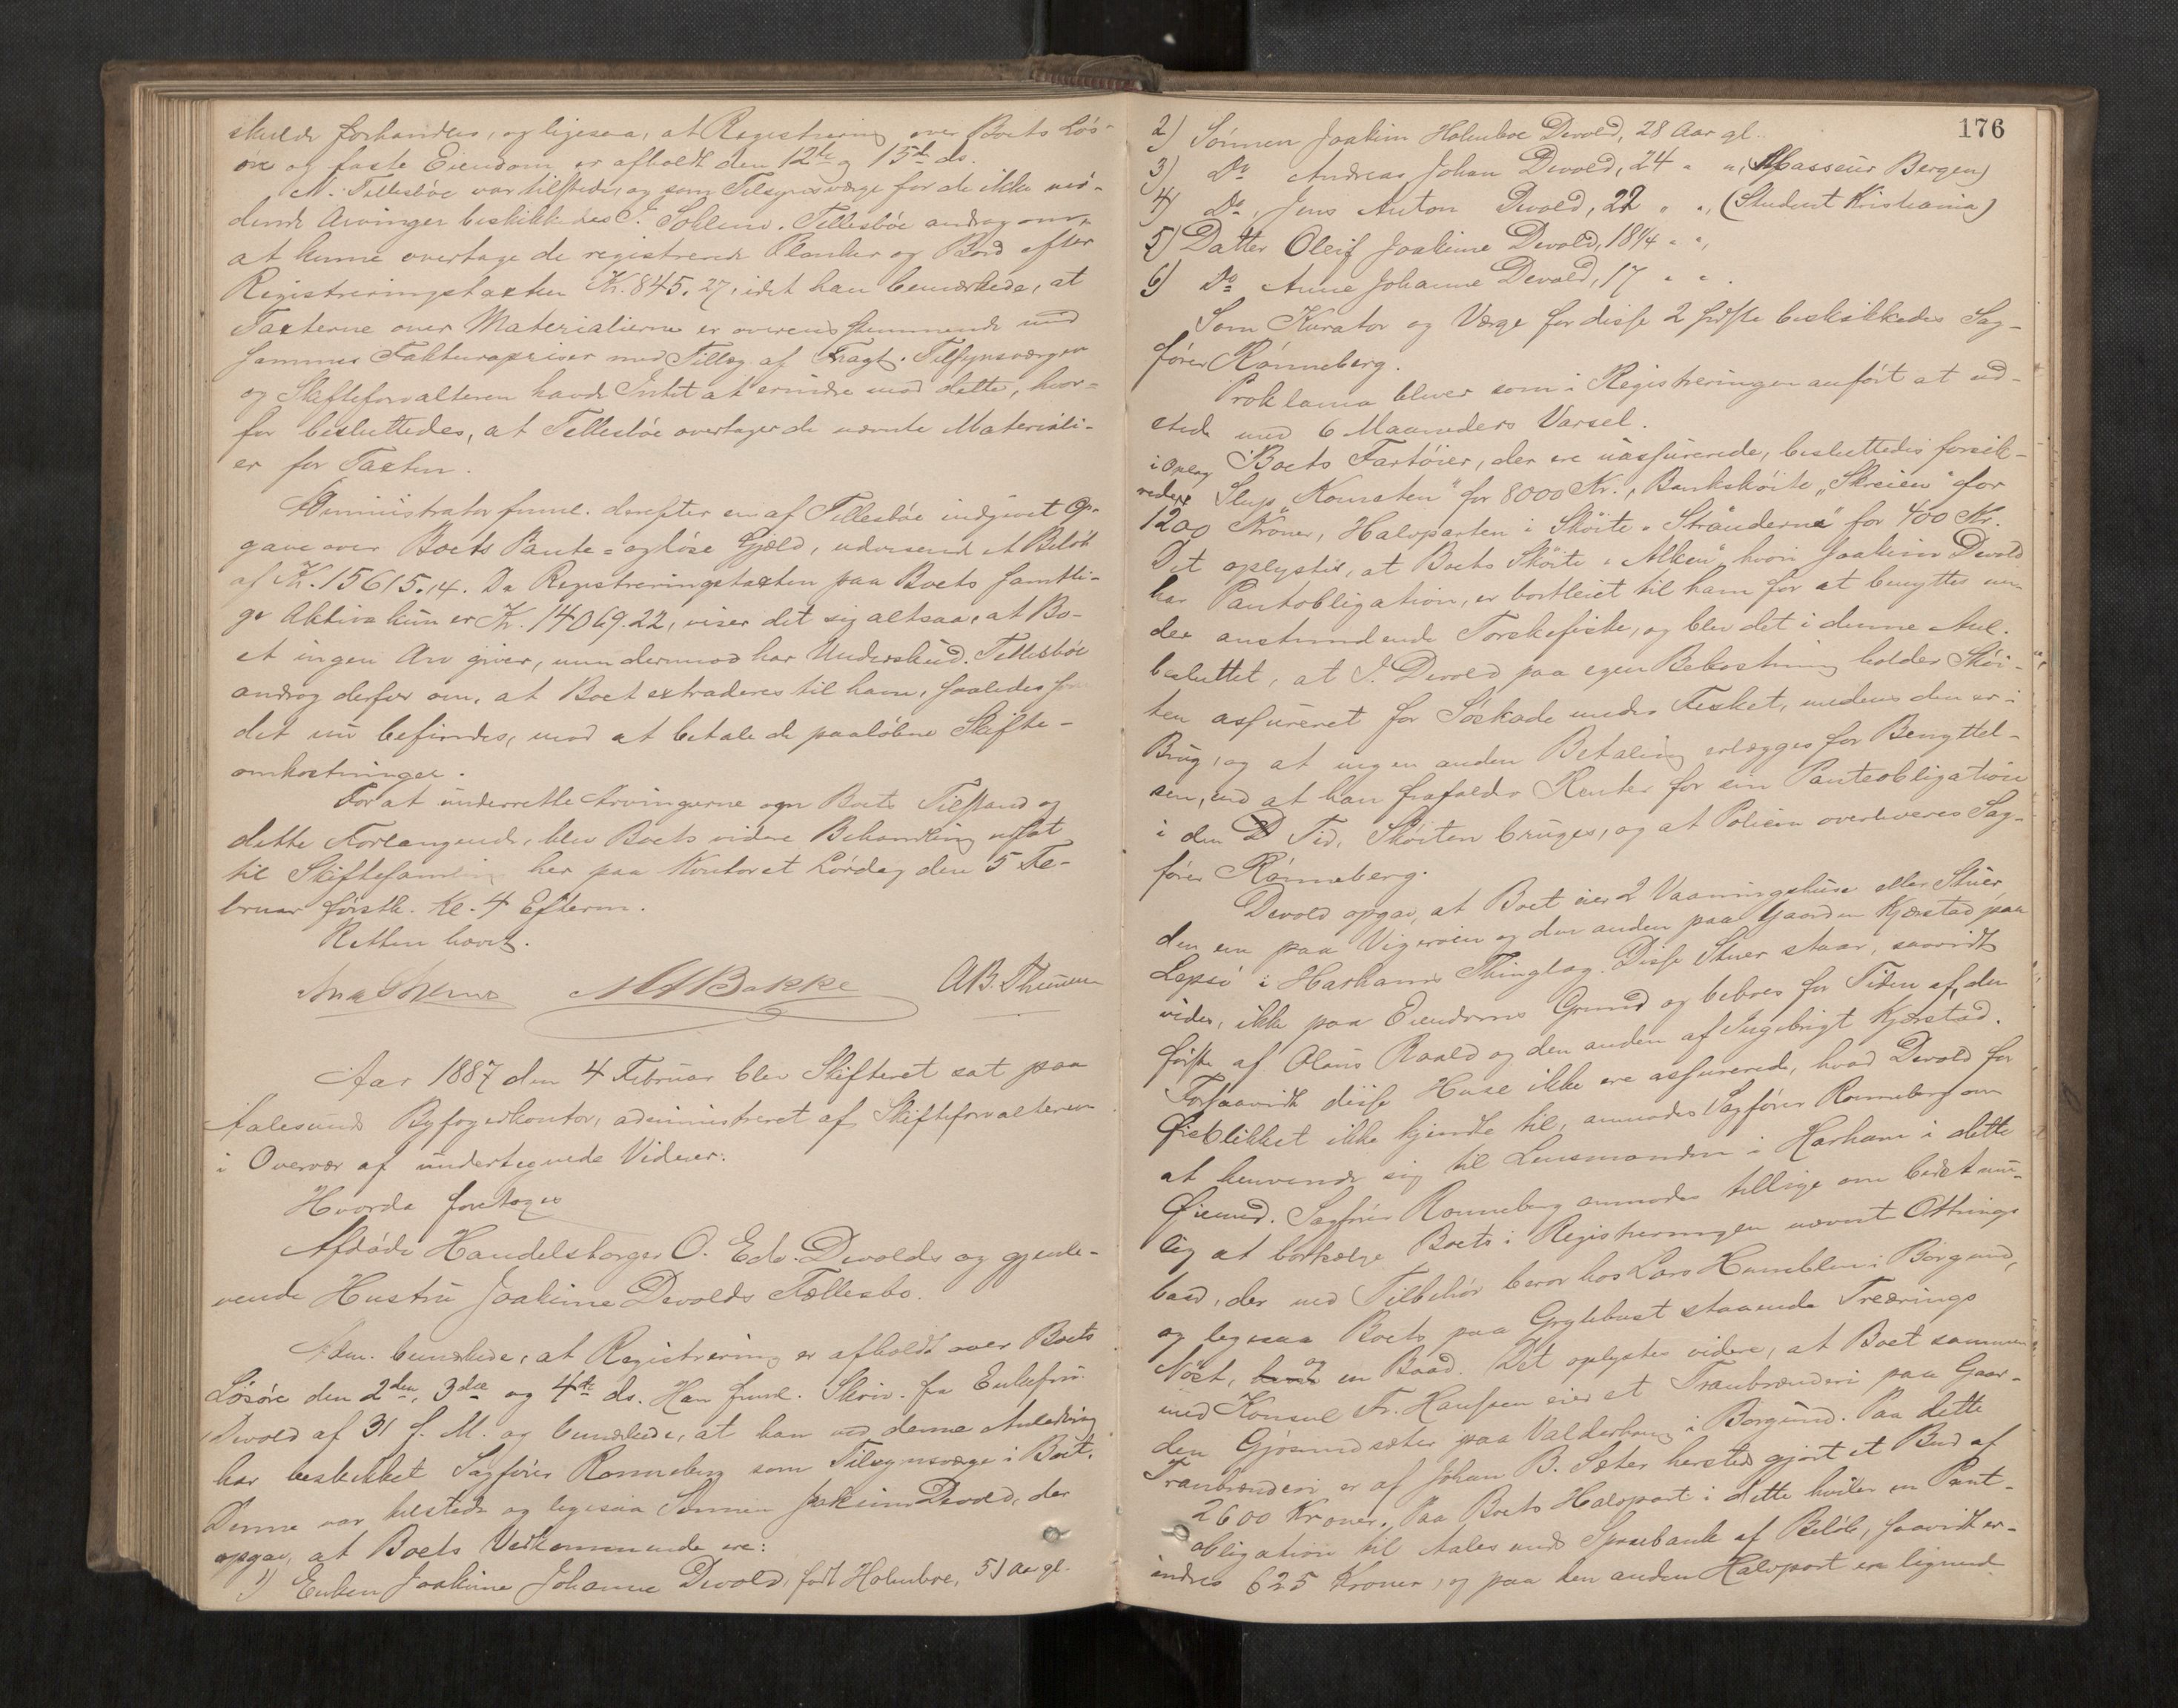 skulde forhandles, og ligesaa, at Registrering over Boets Løs-
øre og faste Eiendom er afholdt den 12te og 15de ds.
N. Tillesbøe var tilstede, og som Tilsynsværge for de ikke mø-
dende Arvinger beskikkedes J. Solem. Tillesbøe androg om,
at kunne overtage de registrerede Planker og Bord efter
Registreringstaxten Kr. 845.27, idet han bemærkede, at
Taxterne over Materialierne er overensstemmende med
sammes Fakturapriser med Tillæg af Fragt. Tilsynsværgen
og Skifteforvalteren havde Intet at erindre mod dette, hvor-
for besluttedes, at Tillesbøe overtager de nævnte Materiali-
er for Taxten.
Administrator freml. derefter en af Tillesbøe indgivet Op-
gave over Boets Pante- og løse Gjæld, udvisende et Beløb
af Kr. 15615.14. Da Registreringstaxten paa Boets samtli-
ge Aktiva kun er Kr. 14069.22, viser det sig altsaa, at Bo-
et ingen Arv giver, men derimod har Underskud. Tillesbøe
androg derfor om, at Boet extraderes til ham, saaledes som
det nu befindes, mod at betale de paaløbne Skifte-
omkostninger.
For at underrette Arvingerne om Boets Tilstand og
dette Forlangende, blev Boets videre Behandling udsat
til Skiftesamling her paa Kontoret Lørdag den 5 Fe-
bruar førstk. Kl. 4 Efterm.
Retten hævet.
MABakke A.B. Thunem
Aar 1887 den 4 Februar blev Skifteret sat paa
Aalesunds Byfogedkontor, administreret af Skifteforvalteren
i Overvær af undertegnede Vidner.
Hvorda foretoges
Afdøde Handelsborger O. Edv. Devolds og gjenle-
vende Hustru Joakime Devolds Fællesbo.
Adm. bemærkede, at Registrering er afholdt over Boets
Løsøre den 2den, 3die og 4de ds. Han freml. Skriv. fra Enkefru
Devold af 31 f. M. og bemærkede, at han ved denne Anledning
har beskikket Sagfører Rønneberg som Tilsynsværge i Boet.
Denne var tilstede og ligesaa Sønnen Joakim Devold, der
opgav, at Boets Vedkommende ere:
1) Enken Joakime Johanne Devold, født Holmboe, 51 Aar gl.
176
2) Sønnen Joakim Holmboe Devold, 28 Aar gl.
3) Do Andreas Johan Devold, 24 " ", (Masseur Bergen)
4) Do, Jens Anton Devold, 22 " ", (Student Kristiania)
5) Datter Oleif Joakime Devold, 18 1/4 " ",
6) Do Anne Johanne Devold, 17 " " .
Som Kurator og Værge for disse 2 sidste beskikkedes Sag-
fører Rønneberg.
Proklama bliver som i Registreringen anført at ud-
stede med 6 Maaneders Varsel.
Boets Fartøier, der ere uassurerede, besluttedes forsik-
i Oplag
redere Slup "Komsten" for 8000 Kr., Bankskøite "Skreien" for
1200 Kroner, Halvparten i Skøite "Stranderne" for 400 Kr.
Det oplystes, at Boets Skøite "Alken" hvori Joakim Devold
har Pantobligation, er bortleiet til ham for at benyttes un-
der anstundende Torskefiske, og blev det i denne Anl.
besluttet, at J. Devold paa egen Bekostning holder Skøi-
ten assureret for Søskade under Fisket, medens den er i
Brug, og at ingen anden Betaling erlægges for Benyttel-
sen, end at han frafalder Renter for sin Panteobligation
i den Tid, Skøiten bruges, og at Policen overleveres Sag-
fører Rønneberg.
Devold opgav, at Boet eier 2 Vaaningshuse eller Stuer,
den ene paa Vigerøen og den anden paa Gaarden Kjærstad paa
Lepsø i Harhams Thinglag. Disse Stuer staar, saavidt
vides, ikke paa Eiendoms Grund og bebos for Tiden af, den
første af Olaus Roald og den anden af Ingebrigt Kjærstad.
Forsaavidt disse Huse ikke ere assurerede, hvad Devold for
Øieblikket ikke kjendte til, anmodes Sagfører Rønneberg om
at henvende sig til Lensmanden i Harham i dette
Øiemed. Sagfører Rønneberg anmodes tillige om bedst mu-
lig at bortsælge Boets i Registreringen nævnt Ottrings
baad, der med Tilbehør beror hos Lars Humblen i Borgund,
og ligesaa Boets paa Grytebust staaende Treærings
Nøst, og en Baad. Det oplystes videre, at Boet sammen
med Konsul Fr. Hanssen eier et Tranbrænderi paa Gaar-
den Gjøsundsæter paa Valderhaug i Borgund. Paa dette
Tranbrænderi er af Johan B. Sæter hersteds gjort et Bud af
2600 Kroner. Paa Boets Halvpart i dette hviler en Pant-
obligation til Aalesunds Sparebank af Beløb, saavidt er-
indres 625 Kroner, og paa den anden Halvpart en lignende